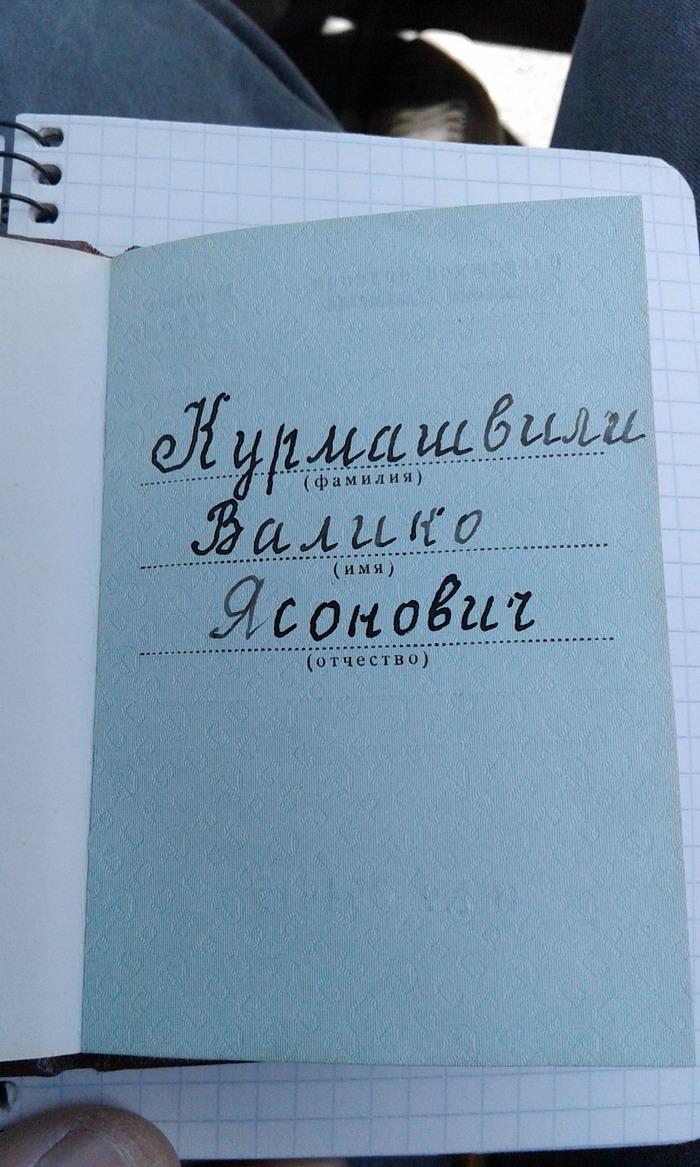 Курмашвили
(фамилия)
Валико
(имя)
Ясонович
(отчество)